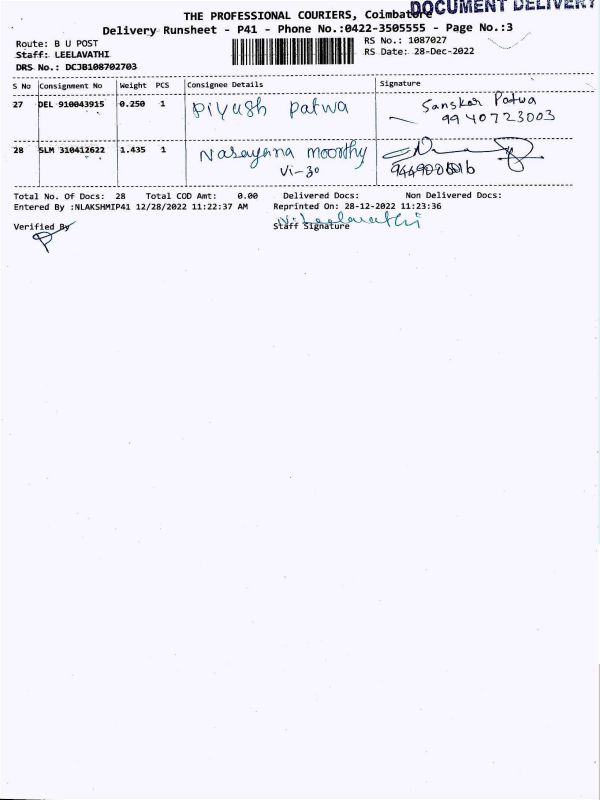 THE PROFESSIONAL COURIERS, Coimbatore
DOCUMENT DELIVERY
Delivery Runsheet - P41 - Phone No.:0422-3505555 - Page No.:3
Route: B U POST
RS No.: 1087027
Staff: LEELAVATHI
RS Date: 28-Dec-2022
DRS No.: DCJB108702703
S No Consignment No Weight PCS Consignee Details Signature
27 DEL 910043915 0.250 1 Piyush Patwa Sanskar Patwa
9940723003
28 SLM 310412622 1.435 1 Narayana moorthy
Vi-30
Total No. Of Docs: 28 Total COD Amt: 0.00 Delivered Docs: Non Delivered Docs:
Entered By :NLAKSHMIP41 12/28/2022 11:22:37 AM Reprinted On: 28-12-2022 11:23:36
Verified By Staff Signature